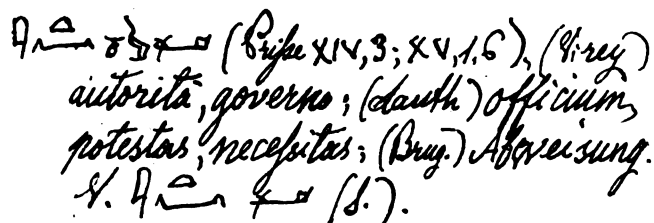 (Prisse XIV, 3; XV, 1. 6), (Virey)
autorità, governo; (Lauth) officium,
potestas, necessitas; (Brug.) Abweisung.
V. (S.).